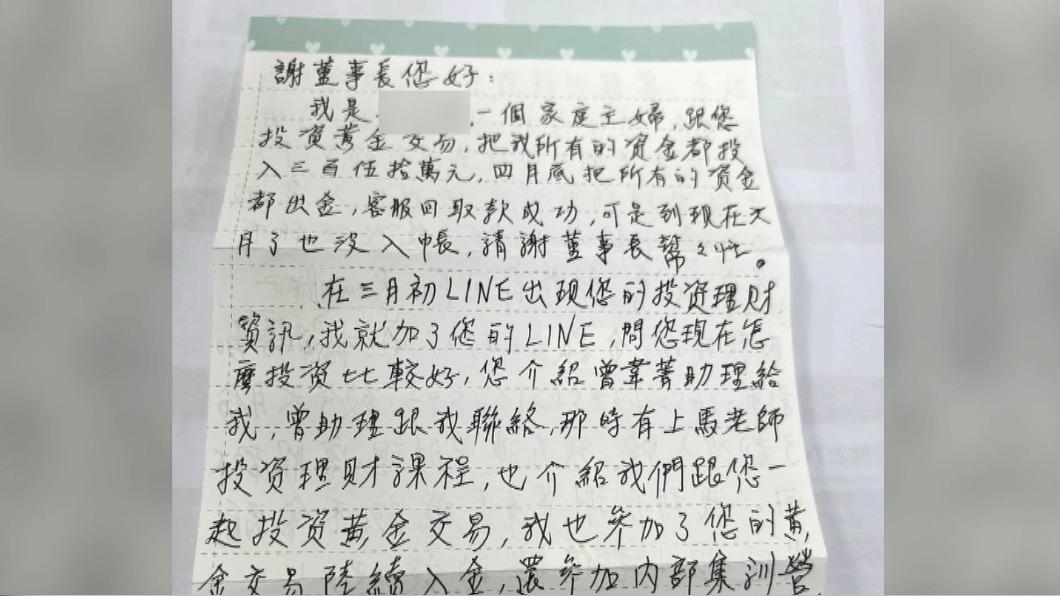 謝董事長您好：
我是 一個家庭主婦，跟您
投資黃金交易，把我所有的資金都投
入三百伍拾萬元，四月底把所有的資金
都出金，客服回取款成功，可是到現在六
月了也沒入帳，請謝董事長幫幫忙。
在三月初LINE出現您的投資理財
資訊，我就加了您的LINE，問您現在怎
麼投資比較好，您介紹曾業菁助理給
我，曾助理跟我聯絡，那時有上馬老師
投資理財課程，也介紹我們跟您一
起投資黃金交易，我也參加了您的黃
金交易陸續入金，還參加內部集訓營